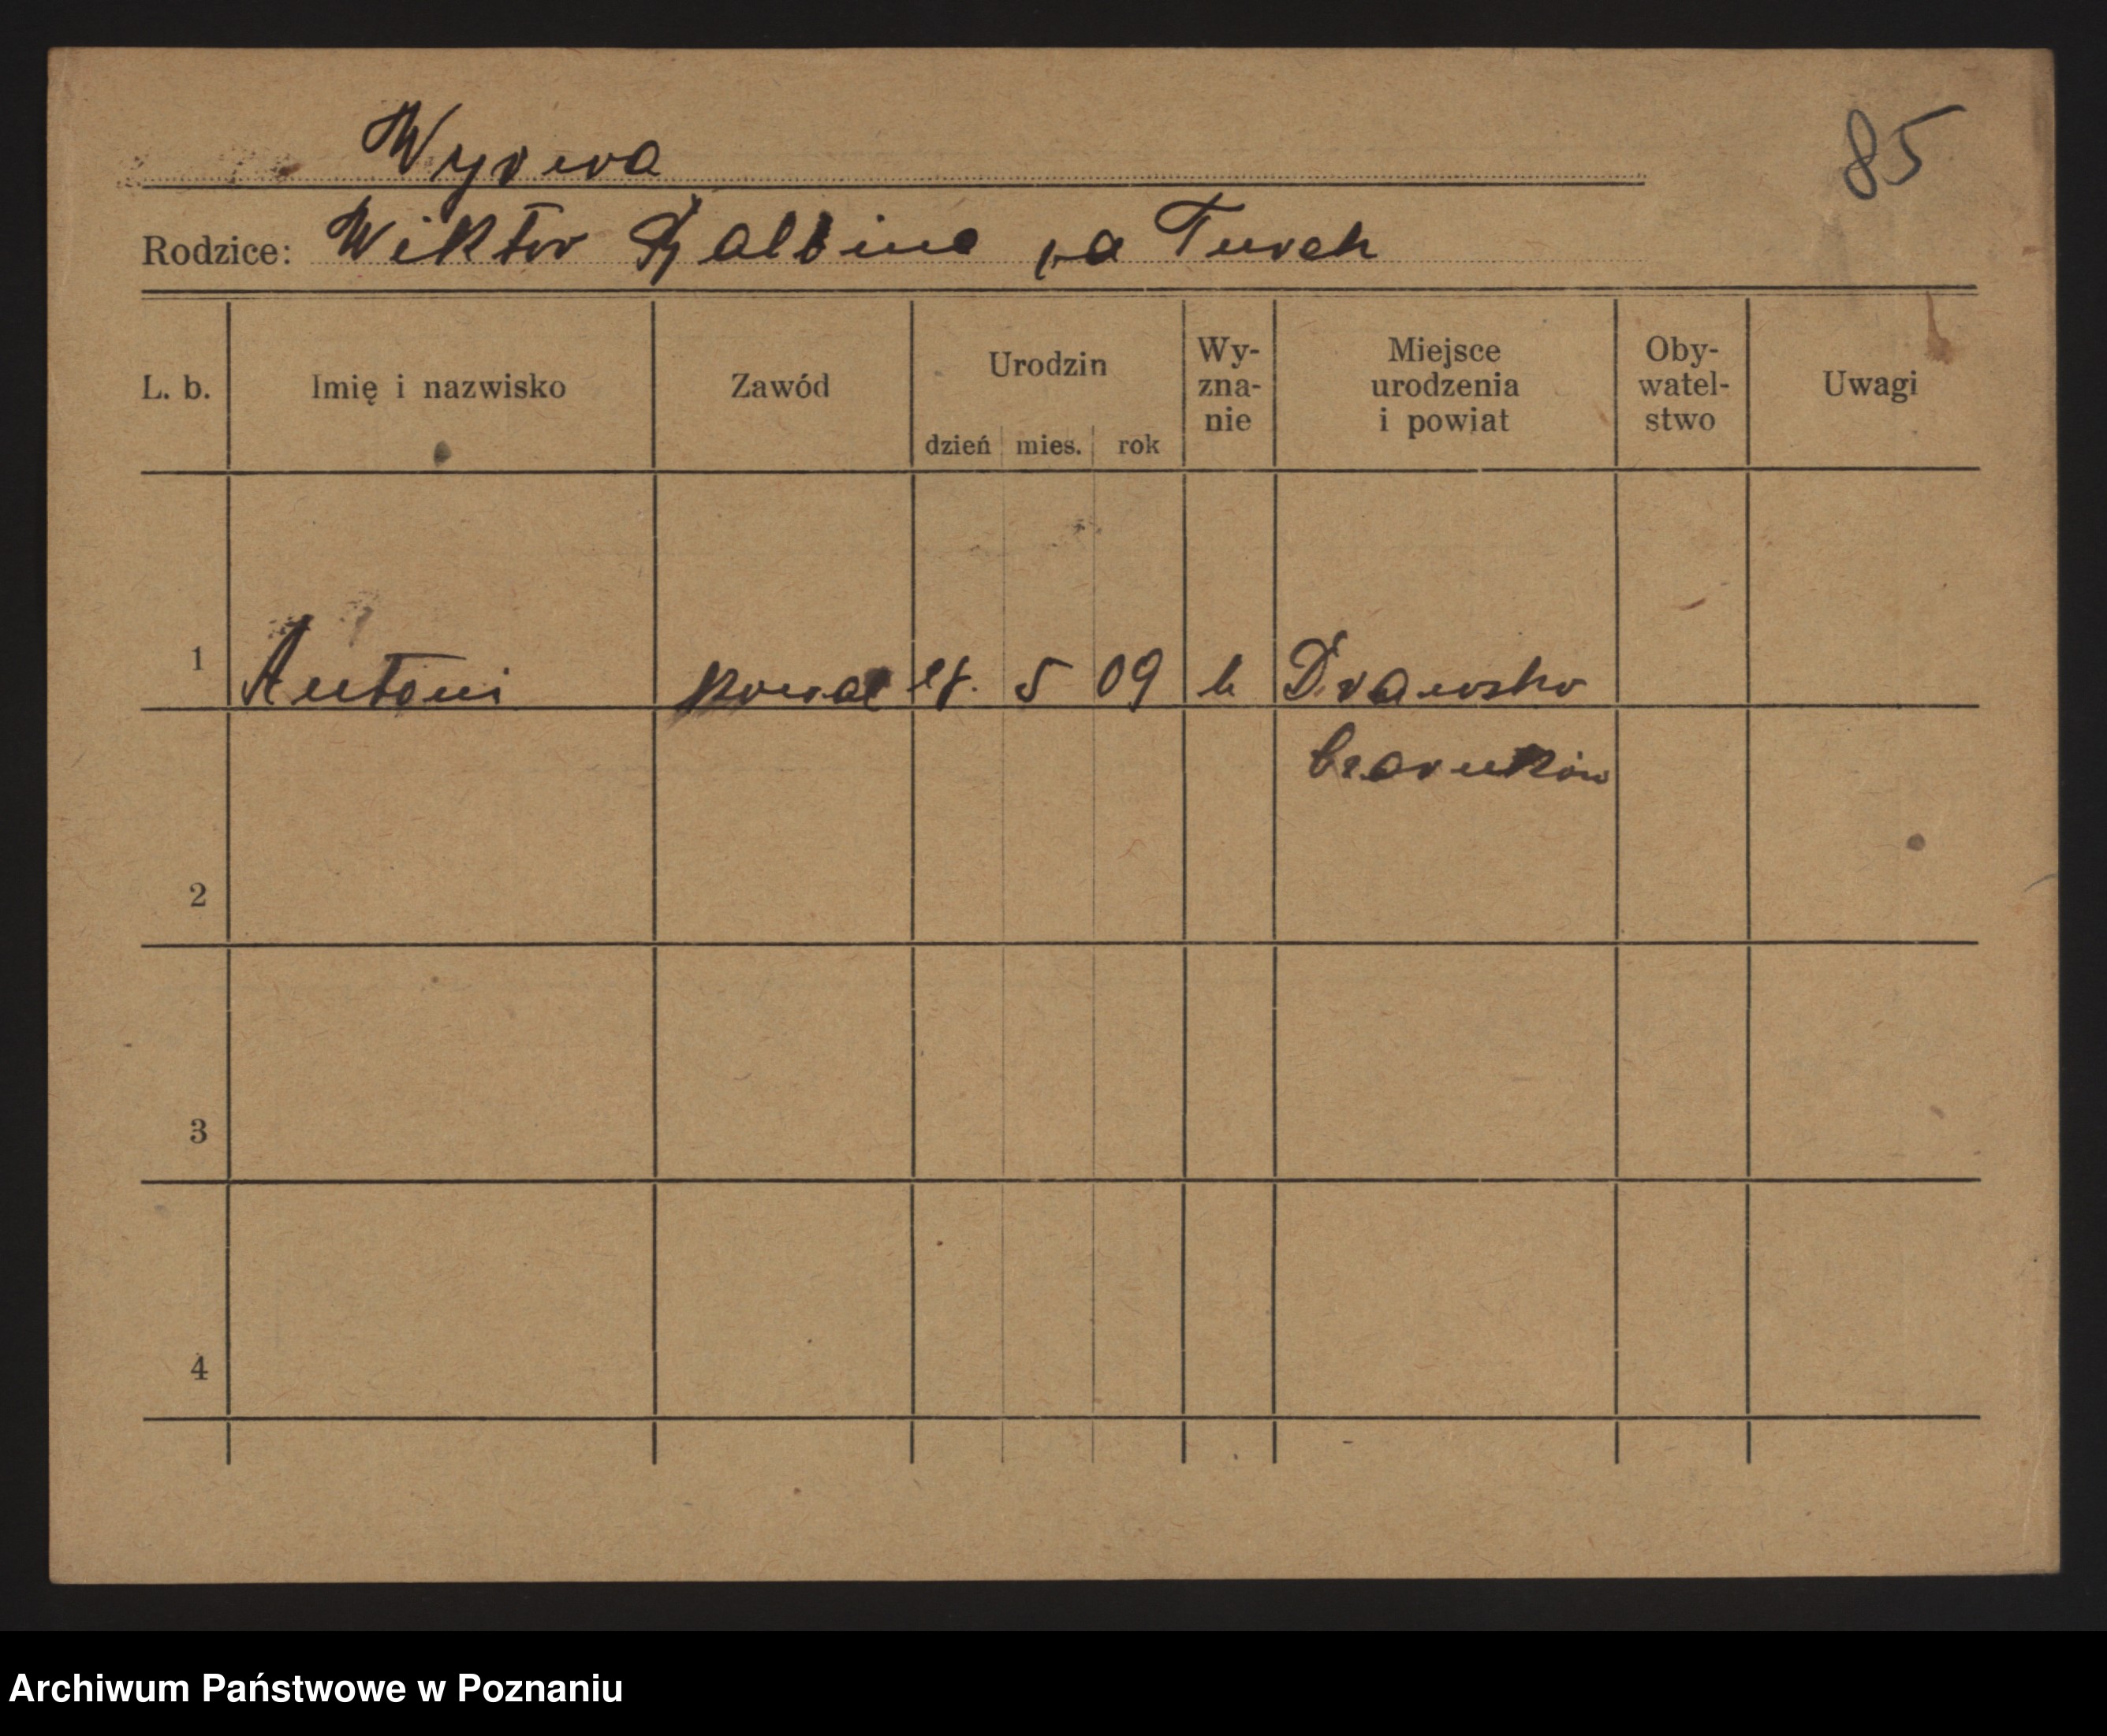 Wyrwa
85
Rodzice: Wiktor Balbina na Turek
L. b. Imię i nazwisko Zawód Urodzin dzień mies. rok Wy-zna-nie Miejsce urodzenia i powiat Oby-watel-stwo Uwagi
1 Antoni kowal 5 09 k Drawsko
Czarnków
2
3
4
Archiwum Państwowe w Poznaniu